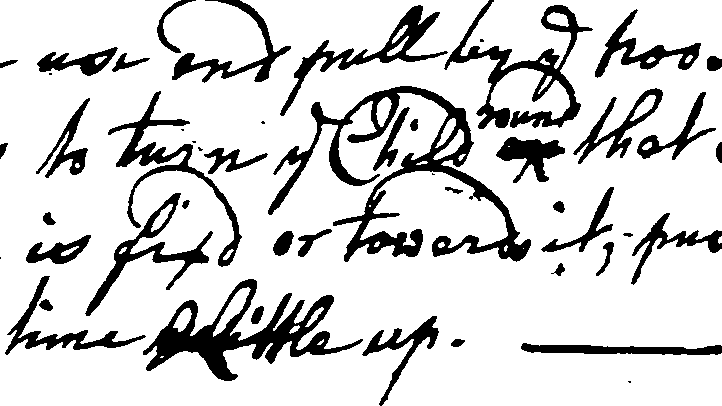 use and pull by yᵉ hoo
to turn yᵉ Child round that
is fixd or towards it, pu
time little up.